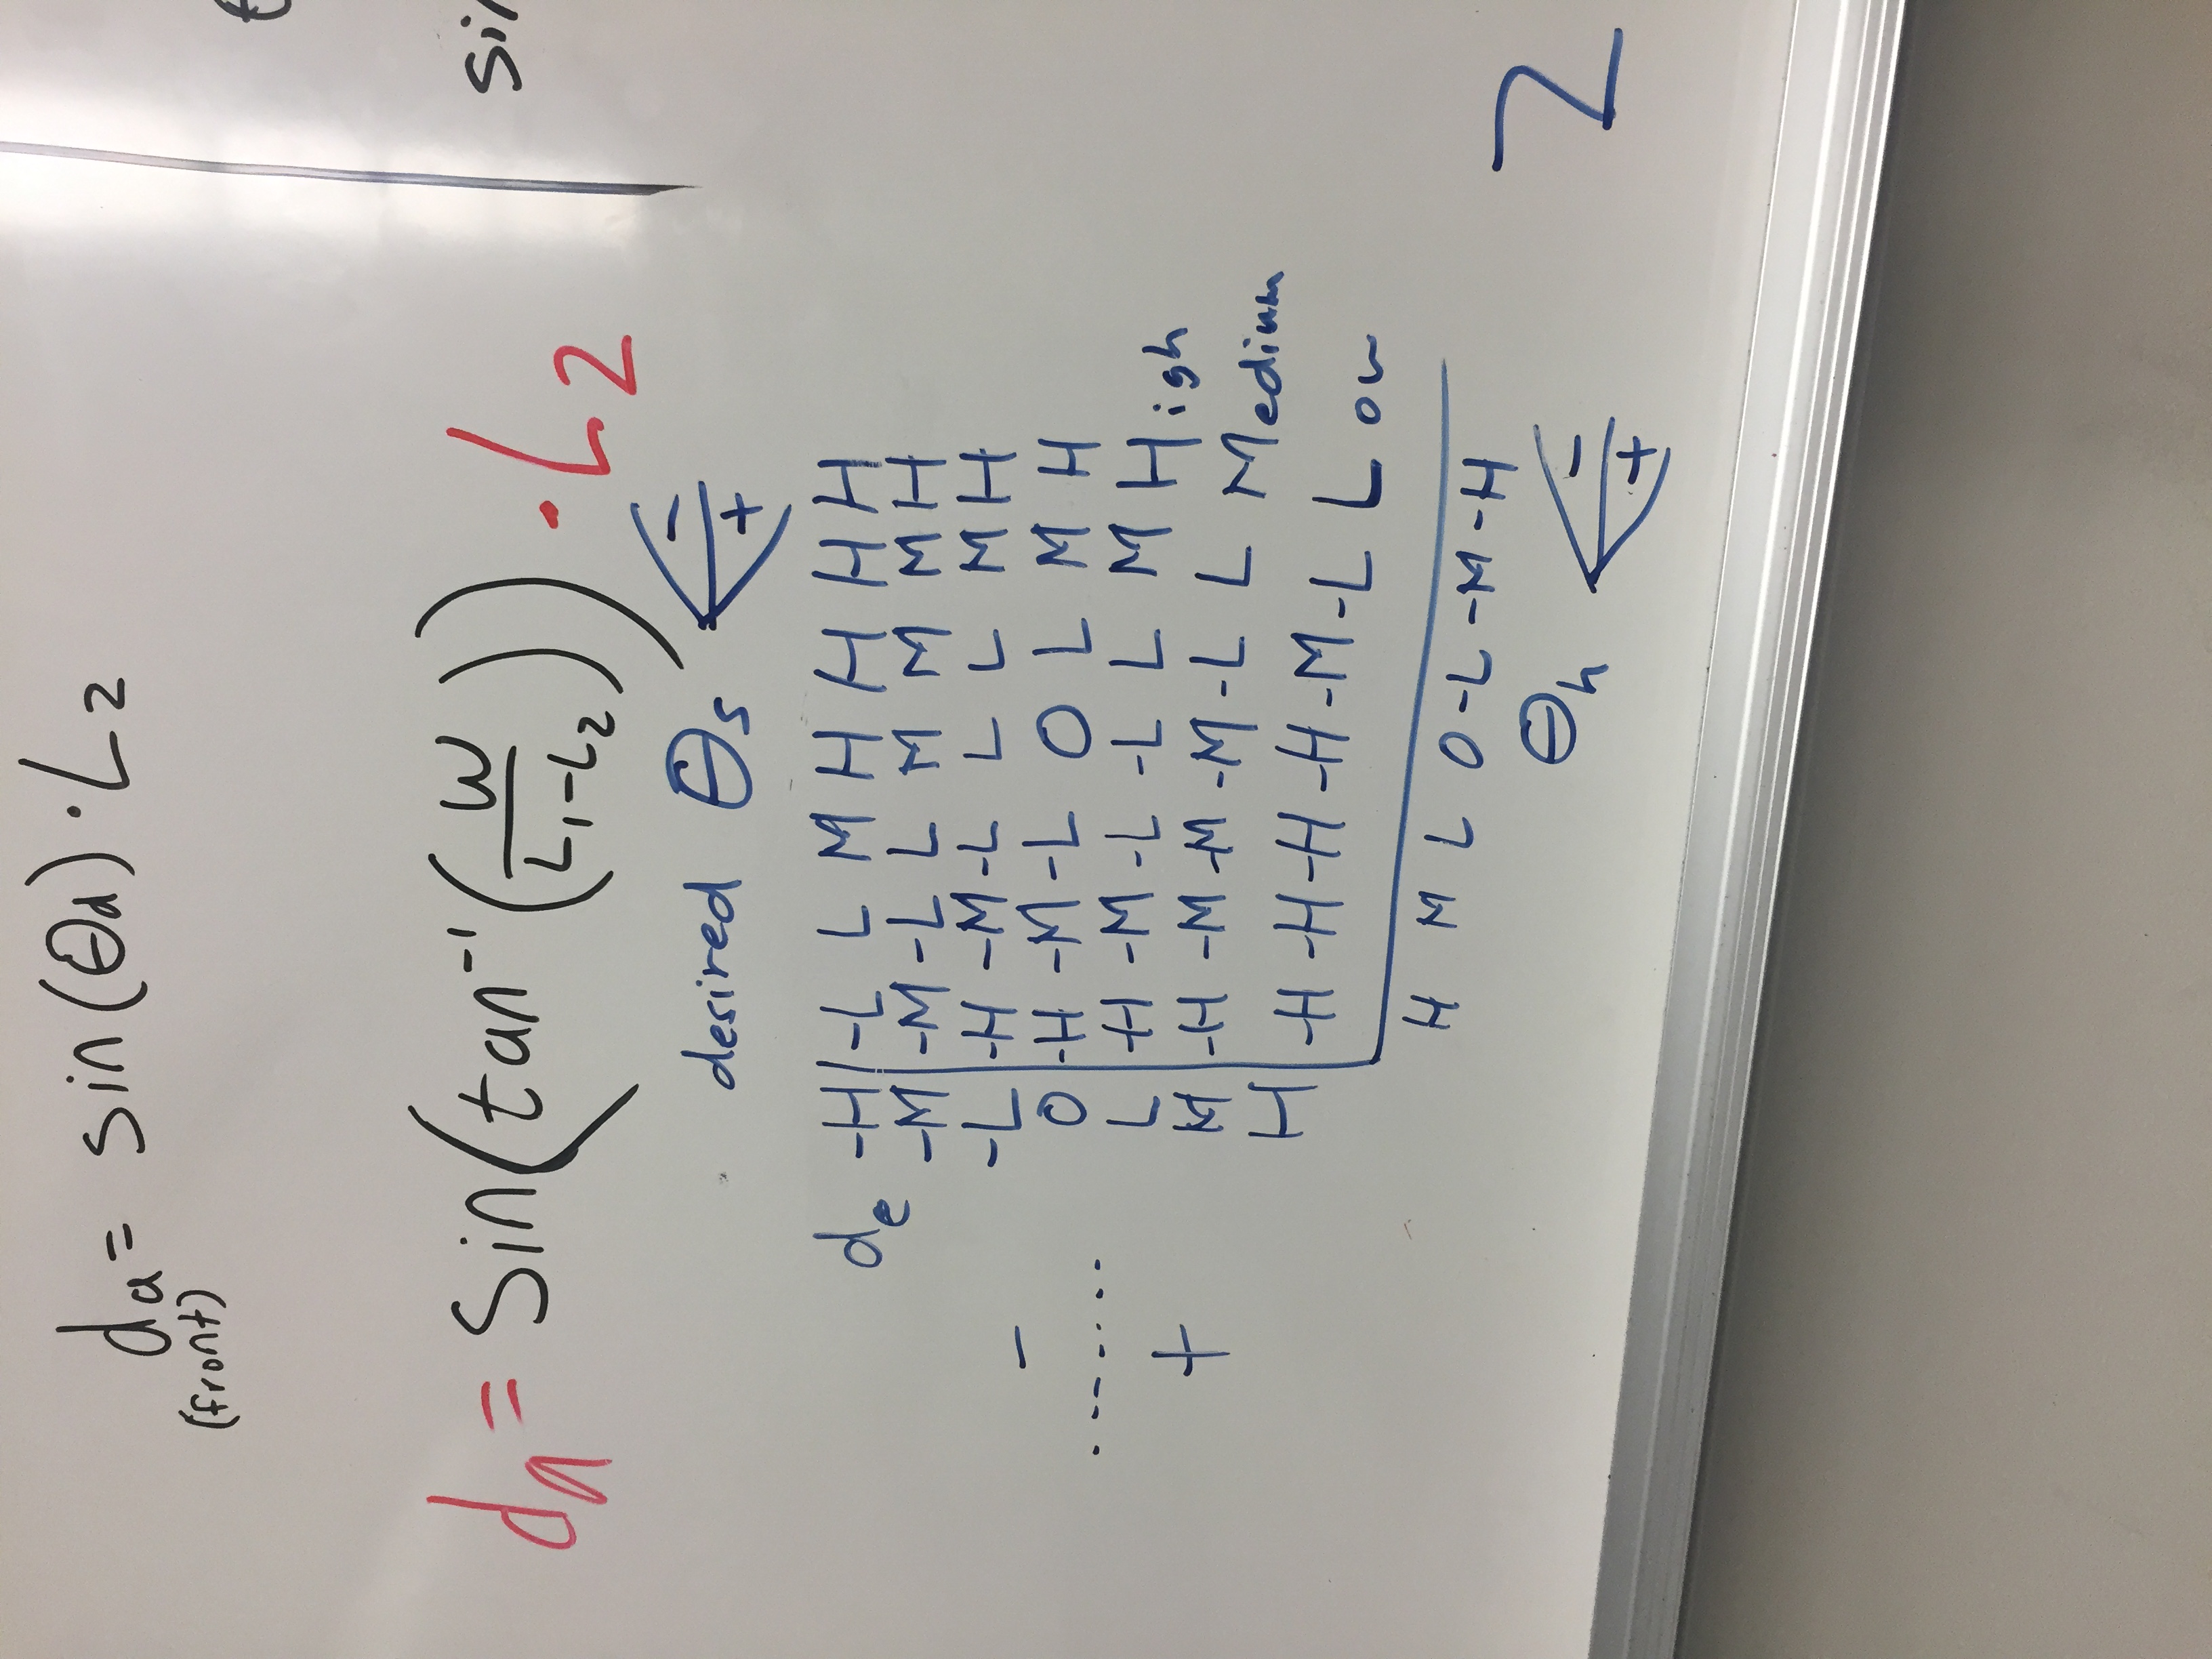 da = sin(θd) · L2
(front)
θ
da = Sin(tan⁻¹(W/(L1-L2))) · L2
sin
desired θs - +
de -H | -L L M H H H H
-M | -M -L L M M M H
-L | -H -M -L L L M H
-
0 | -H -M -L 0 L M H
L | -H -M -L -L L M High
+
M | -H -M -M -M -L L Medium
H | -H -H -H -H -M -L Low
H M L 0 -L -M -H
θh - +
Z